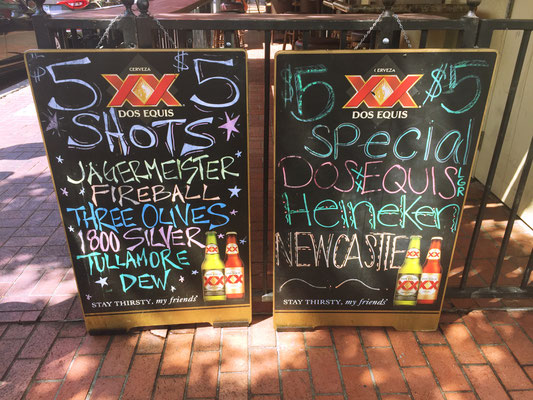 $5 $5
CERVEZA
XX
DOS EQUIS
SHOTS
JÄGERMEISTER
FIREBALL
THREE OLIVES
1800 SILVER
TULLAMORE
DEW
XX
XX
STAY THIRSTY, my friends
$5 $5
CERVEZA
XX
DOS EQUIS
special
DOS XX EQUIS LGR
Heineken
NEWCASTLE
XX
XX
STAY THIRSTY, my friends